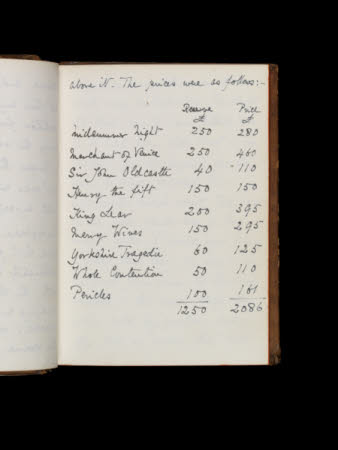 above it. The prices were as follows:-
Reserve Price
£ £
Midsummer Night 250 280
Merchant of Venice 250 460
Sir John Oldcastle 40 110
Henry the fift 150 150
King Lear 200 395
Merry Wives 150 295
Yorkshire Tragedie 60 125
Whole Contention 50 110
Pericles 100 161
1250 2086